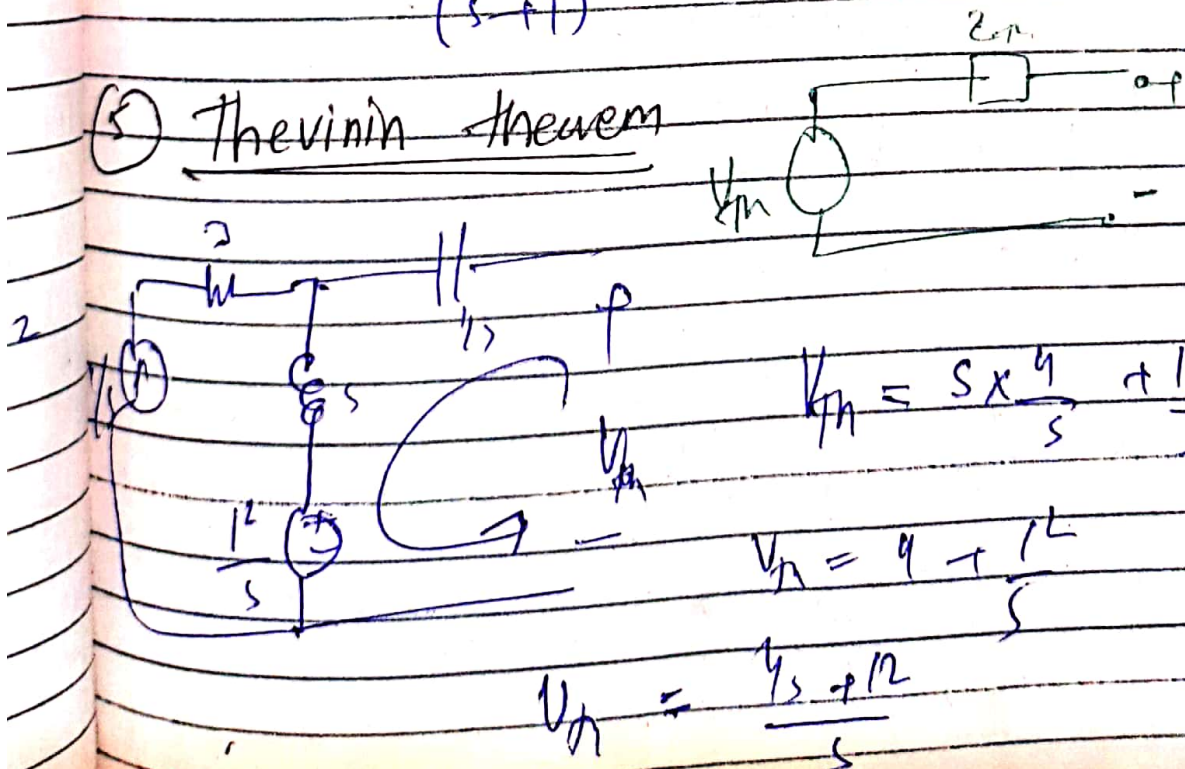 (s+1)
Zth
⑤ Thevinin theorem
Vth
-
1/s
s
Vth
-
12
s
Vth = s x 4/s + 1
Vth = 4 + 12/s
Vth = 4s + 12 / s